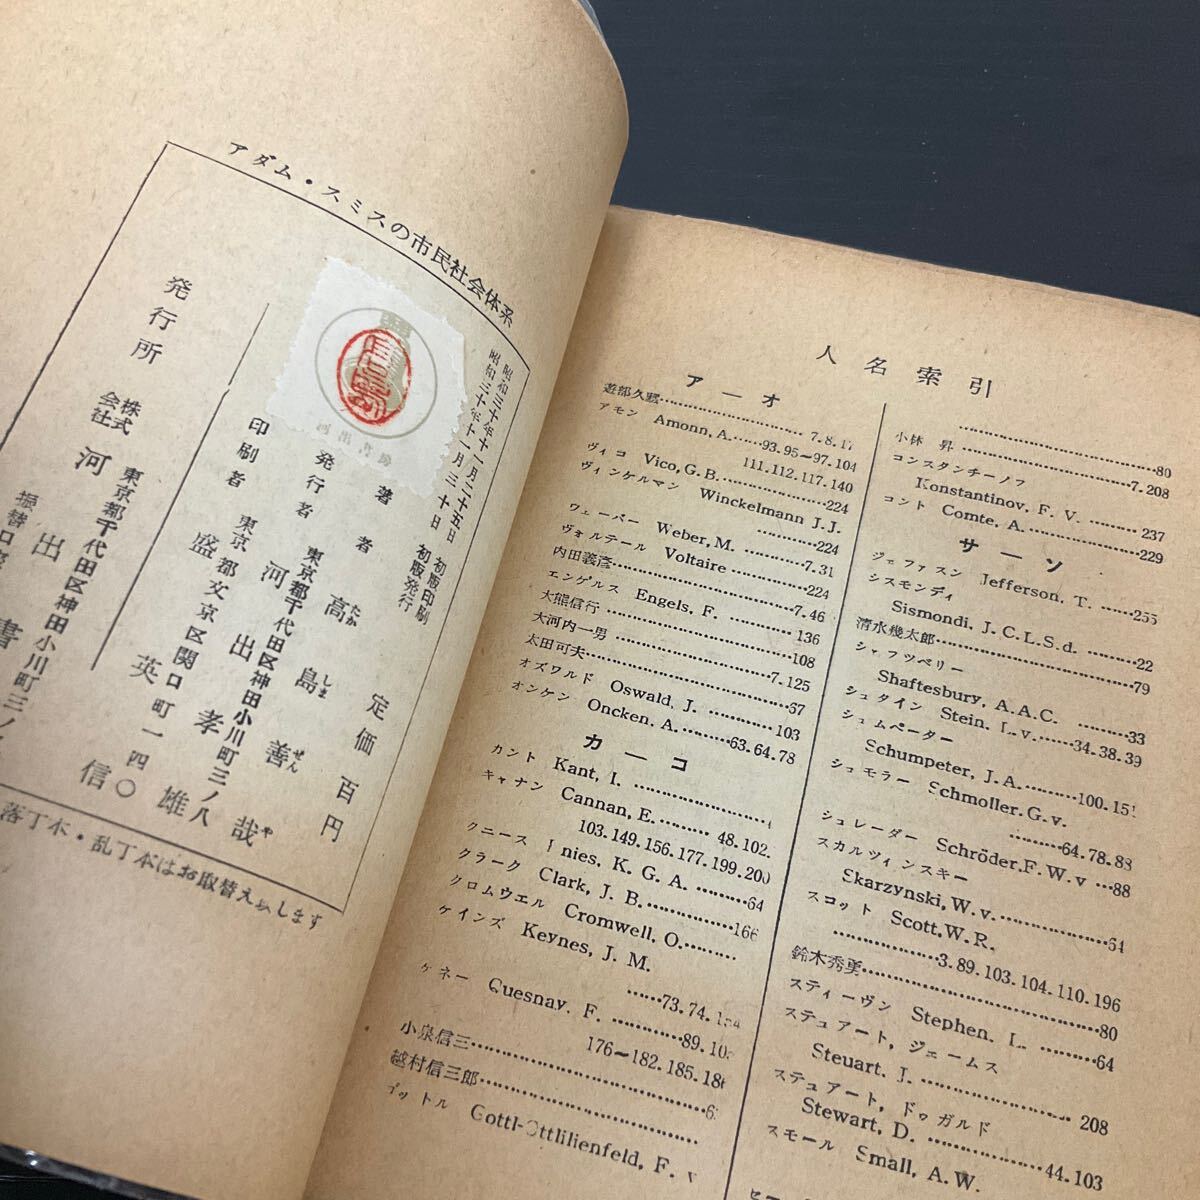 アダム・スミスの市民社会体系
昭和三十年十一月二十五日 初版印刷
昭和三十年十一月三十日 初版発行
定価 百円
著者 高島善哉
たか しま ぜん や
発行者 河出孝雄
東京都千代田区神田小川町三ノ八
印刷者 盛英信
東京都文京区関口町一四〇
発行所 株式会社 河出書
東京都千代田区神田小川町三ノ
振替口
落丁本・乱丁本はお取替えします
河出書房
人名索引
ア―オ
遊部久蔵 7.8.17
アモン Amonn, A. 93.95~97.104
111.112.117.140
ヴィコ Vico, G. B. 224
ヴィンケルマン Winckelmann J. J.
224
ウェーバー Weber, M. 7.31
ヴォルテール Voltaire 224
内田義彦 7.46
エンゲルス Engels, F. 136
大熊信行 108
大河内一男 7.125
太田可夫 67
オズワルド Oswald, J. 103
オンケン Oncken. A. 63.64.78
カ―コ
カント Kant, I.
キャナン Cannan, E. 48.102.
103.149.156.177.199.200
クニース nies, K. G. A. 64
クラーク Clark, J. B. 166
クロムウエル Cromwell, O.
ケインズ Keynes, J. M.
73.74.
ケネー Quesnay. F. 89.10
176~182.185.186
小泉信三
越村信三郎 6
ゴットル Gottl-Ottlilienfeld, F. v
小林 昇 80
コンスタンチーノフ 7.208
Konstantinov, F. V. 237
コント Comte, A. 229
サ―ソ
ジェファスン Jefferson, T. 255
シスモンディ
Sismondi, J. C. L. S. d. 22
清水幾太郎 79
シャフツベリー
Shaftesbury, A. A. C. 33
シュタイン Stein. L. v. 34.38.39
シュムペーター
Schumpeter, J. A. 100.151
シュモラー Schmoller. G. v.
64.78.88
シュレーダー Schröder. F. W. v 88
スカルツィンスキー
Skarzynski, W. v. 64
スコット Scott. W. R.
3.89.103.104.110.196
鈴木秀勇 80
スティーヴン Stephen. L. 64
ステュアート, ジェームス
Steuart. J. 208
ステュアート, ドゥガルド
Stewart, D. 44.103
スモール Small, A. W.